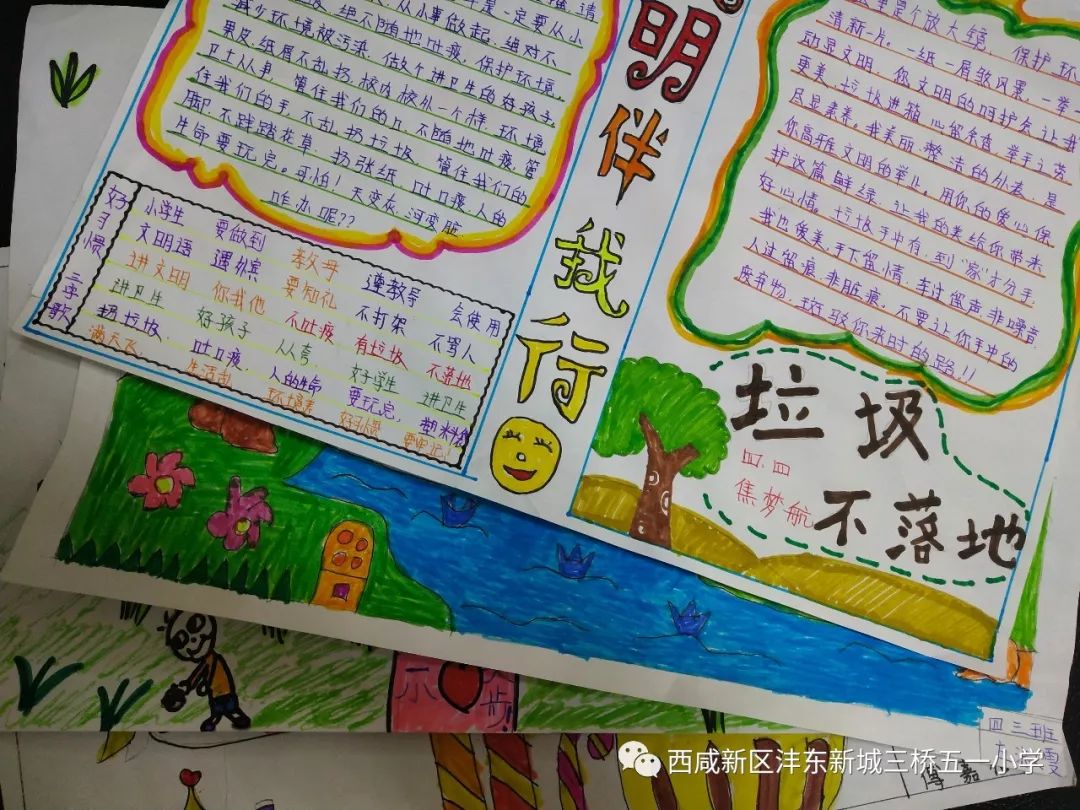 从小事做起,绝对不
一定要从小
绝不随地吐痰,保护环境
减少环境被污染,做个讲卫生的好孩子
果皮,纸屑不乱扔,校内校外一个样,环境
卫士从身,管住我们的口,不随地吐痰,管
住我们的手,不乱扔垃圾,管住我们的
脚,不践踏花草,扔张纸,吐口痰,人的
生命要玩完。可怕!天变灰,河变脏
咋办呢??
好习惯三字歌
小学生 要做到 教父母 遵教导 会使用
文明语 遇外宾 要知礼 不打架 不骂人
讲文明 你我他 不吐痰 有垃圾 不落地
讲卫生 好孩子 从今 好学生 讲卫生
扔垃圾, 吐口痰, 人的生命 要玩完, 塑料袋
满天飞 生活乱 环境美 好习惯 要牢记!
明伴我行
是个放大镜,保护环
清新一片。一纸一屑煞风景,一举一
动显文明,你文明的呵护会让我
更美,垃圾进箱,心留余香,举手之劳
尽显素养。我美丽,整洁的外表,是
你高雅文明的举止。用你的爱心保
护这篇鲜绿,让我的美给你带来
好心情。垃圾手中存,到“家”才分手,
我也爱美,手下留情,车过留声,非噪音
人过留痕,非脏痕,不要让你手中的
废弃物,斑驳你来时的路!!
垃圾
不落地
四.四
焦梦航
示
步
四三班
傅嘉
西咸新区沣东新城三桥五一小学